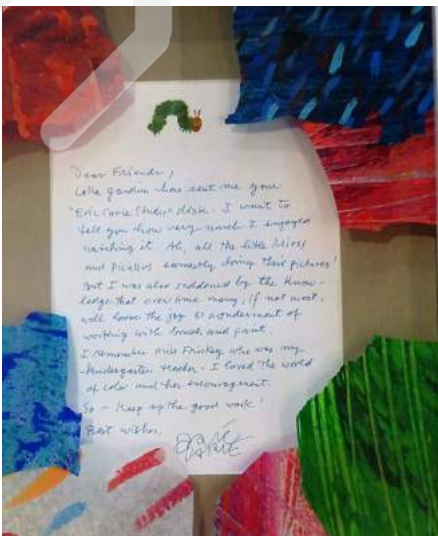 Dear Friends,
Lella Gandini has sent me your
"Eric Carle Study" disk. I want to
tell you how very much I enjoyed
watching it. Ah, all the little Miros
and Picassos earnestly doing their pictures!
But I was also saddened by the know-
ledge that over time many, if not most,
will loose the joy & wonderment of
working with brush and paint.
I remember Miss Frickey who was my
kindergarten teacher. I loved the world
of color and her encouragement.
So – keep up the good work!
Best wishes,